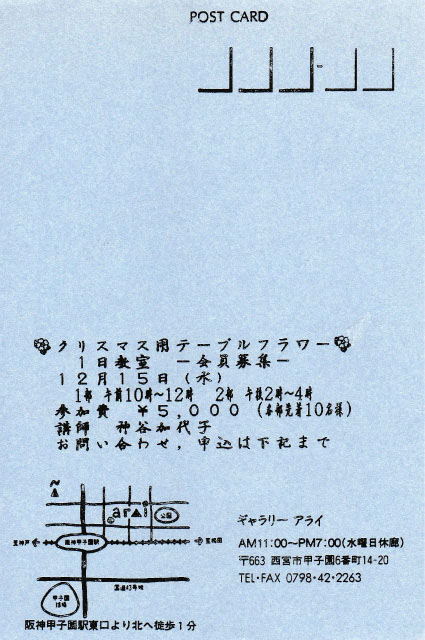 POST CARD
クリスマス用テーブルフラワー
1日教室 ー会員募集ー
12月15日(水)
1部 午前10時〜12時 2部 午後2時〜4時
参加費 ¥5,000(各部先着10名様)
講師 神谷加代子
お問い合わせ,申込は下記まで
arai
公園
至神戸
阪神甲子園駅
至梅田
国道43号線
甲子園
球場
阪神甲子園駅東口より北へ徒歩1分
ギャラリー アライ
AM11:00〜PM7:00(水曜日休廊)
〒663 西宮市甲子園6番町14-20
TEL・FAX 0798・42・2263